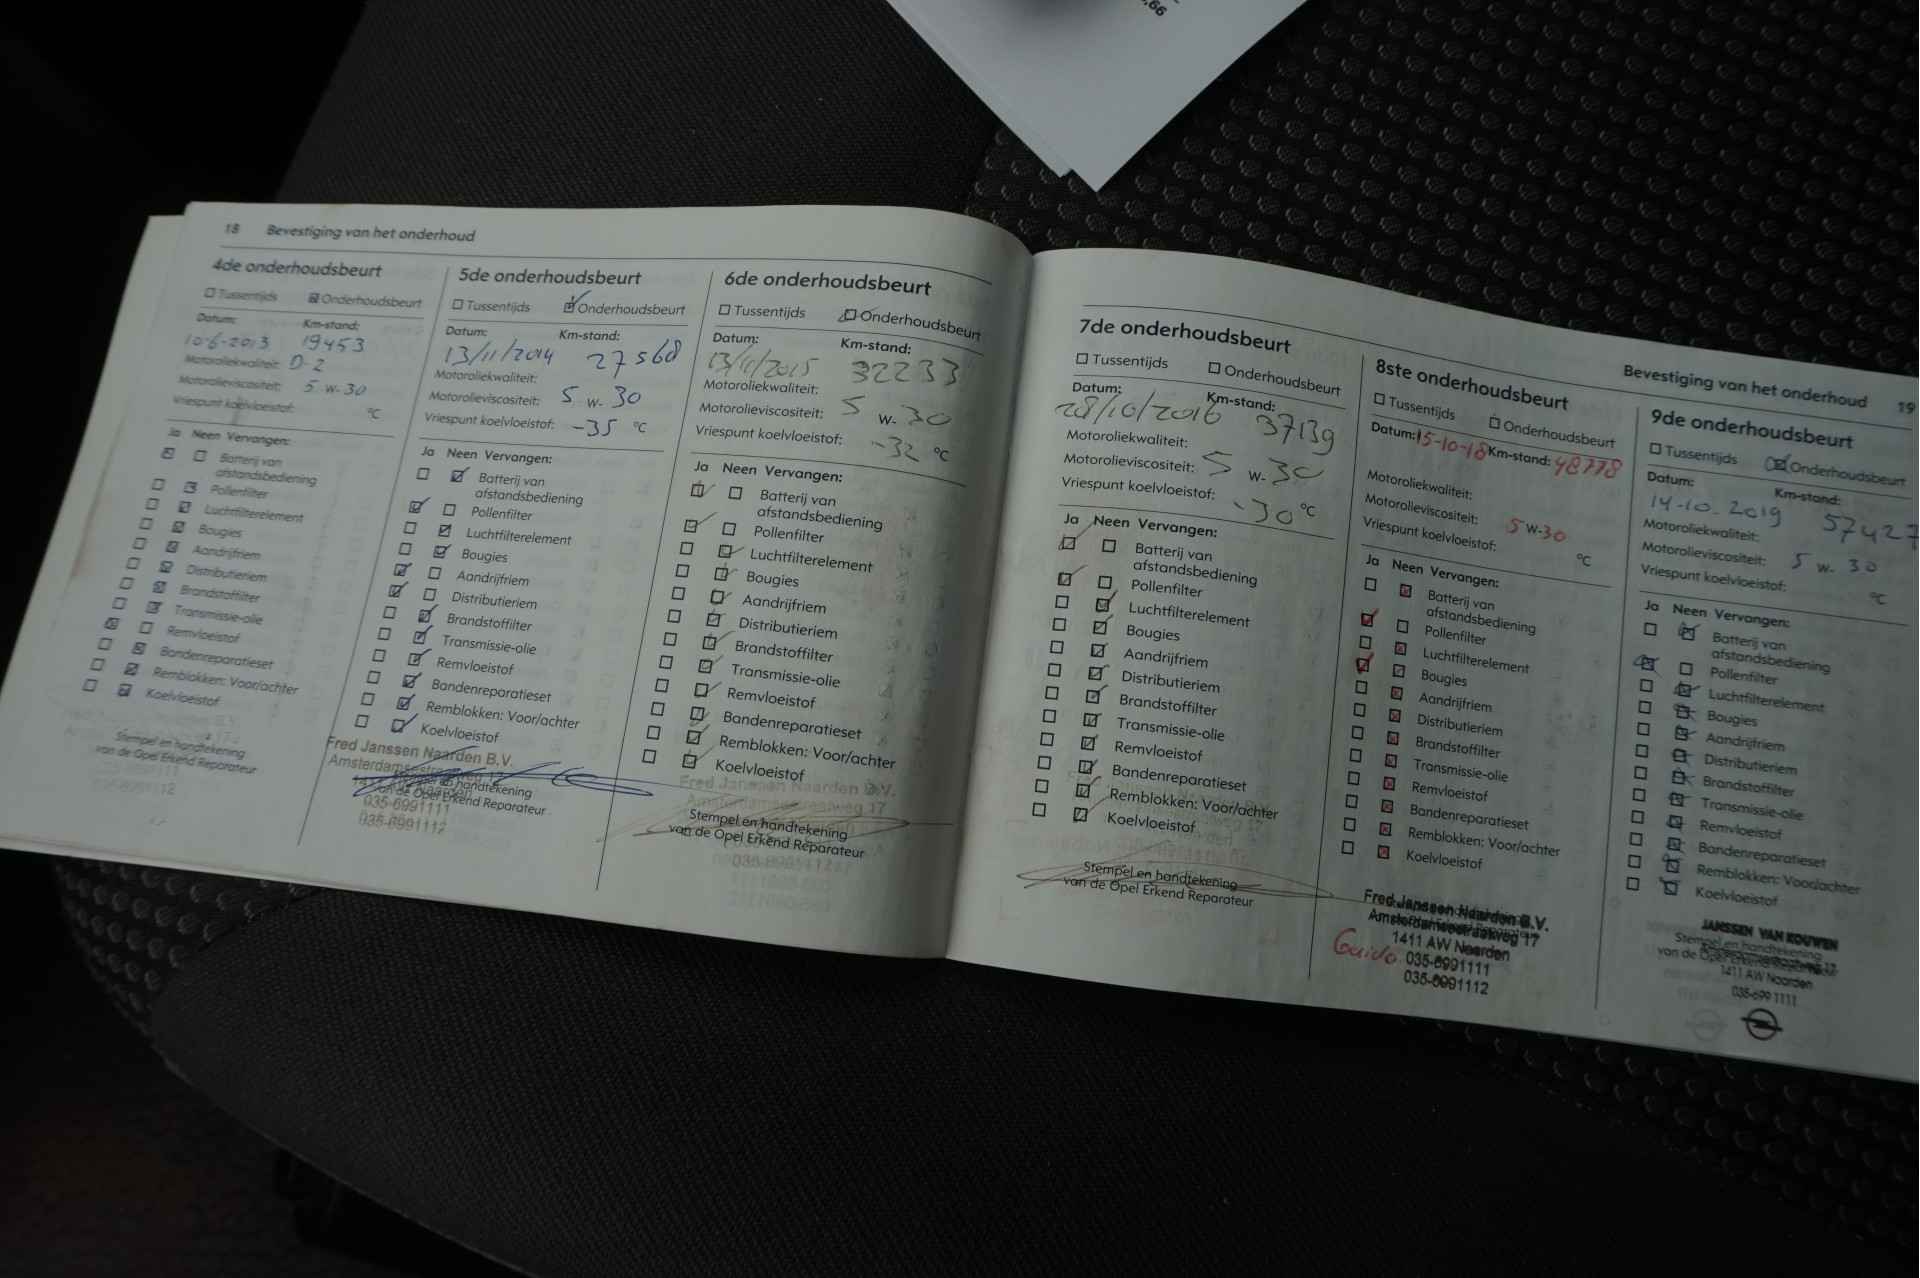 ,66
18 Bevestiging van het onderhoud
4de onderhoudsbeurt
Tussentijds Onderhoudsbeurt
Datum: Km-stand:
10-6-2013 19453
Motoroliekwaliteit: D-2
Motorolieviscositeit: 5 W- 30
Vriespunt koelvloeistof: °C
Ja Neen Vervangen:
Batterij van
afstandsbediening
Pollenfilter
Luchtfilterelement
Bougies
Aandrijfriem
Distributieriem
Brandstoffilter
Transmissie-olie
Remvloeistof
Bandenreparatieset
Remblokken: Voor/achter
Koelvloeistof
Stempel en handtekening
van de Opel Erkend Reparateur
5de onderhoudsbeurt
Tussentijds Onderhoudsbeurt
Datum: Km-stand:
13/11/2014 27568
Motoroliekwaliteit:
Motorolieviscositeit: 5 W- 30
Vriespunt koelvloeistof: -35 °C
Ja Neen Vervangen:
Batterij van
afstandsbediening
Pollenfilter
Luchtfilterelement
Bougies
Aandrijfriem
Distributieriem
Brandstoffilter
Transmissie-olie
Remvloeistof
Bandenreparatieset
Remblokken: Voor/achter
Koelvloeistof
Fred Janssen Naarden B.V.
Amsterdamsestraatweg 17
Stempel en handtekening
van de Opel Erkend Reparateur
035-6991111
035-6991112
6de onderhoudsbeurt
Tussentijds Onderhoudsbeurt
Datum: Km-stand:
13/11/2015 32233
Motoroliekwaliteit:
Motorolieviscositeit: 5 W- 30
Vriespunt koelvloeistof: -32 °C
Ja Neen Vervangen:
Batterij van
afstandsbediening
Pollenfilter
Luchtfilterelement
Bougies
Aandrijfriem
Distributieriem
Brandstoffilter
Transmissie-olie
Remvloeistof
Bandenreparatieset
Remblokken: Voor/achter
Koelvloeistof
Fred Janssen Naarden B.V.
Amsterdamsestraatweg 17
Stempel en handtekening
van de Opel Erkend Reparateur
Bevestiging van het onderhoud 19
7de onderhoudsbeurt
Tussentijds Onderhoudsbeurt
Datum: Km-stand:
28/10/2016 37139
Motoroliekwaliteit:
Motorolieviscositeit: 5 W- 30
Vriespunt koelvloeistof: -30 °C
Ja Neen Vervangen:
Batterij van
afstandsbediening
Pollenfilter
Luchtfilterelement
Bougies
Aandrijfriem
Distributieriem
Brandstoffilter
Transmissie-olie
Remvloeistof
Bandenreparatieset
Remblokken: Voor/achter
Koelvloeistof
Stempel en handtekening
van de Opel Erkend Reparateur
8ste onderhoudsbeurt
Tussentijds Onderhoudsbeurt
Datum: 15-10-18 Km-stand: 48778
Motoroliekwaliteit:
Motorolieviscositeit: 5 W-30
Vriespunt koelvloeistof: °C
Ja Neen Vervangen:
Batterij van
afstandsbediening
Pollenfilter
Luchtfilterelement
Bougies
Aandrijfriem
Distributieriem
Brandstoffilter
Transmissie-olie
Remvloeistof
Bandenreparatieset
Remblokken: Voor/achter
Koelvloeistof
Fred Janssen Naarden B.V.
Amsterdamsestraatweg 17
1411 AW Naarden
Guido 035-6991111
035-6991112
9de onderhoudsbeurt
Tussentijds Onderhoudsbeurt
Datum: Km-stand:
14-10-2019 57427
Motoroliekwaliteit:
Motorolieviscositeit: 5 W- 30
Vriespunt koelvloeistof: °C
Ja Neen Vervangen:
Batterij van
afstandsbediening
Pollenfilter
Luchtfilterelement
Bougies
Aandrijfriem
Distributieriem
Brandstoffilter
Transmissie-olie
Remvloeistof
Bandenreparatieset
Remblokken: Voor/achter
Koelvloeistof
JANSSEN VAN KOUWEN
Stempel en handtekening
van de Opel Erkend Reparateur
1411 AW Naarden
035-699 1111